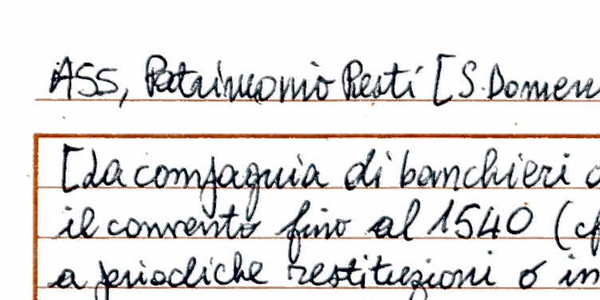 ASS, Patrimonio Resti [S. Domen
[La compaguia di banchieri
il convento fino al 1540 (cf
a periodiche restituzioni o in